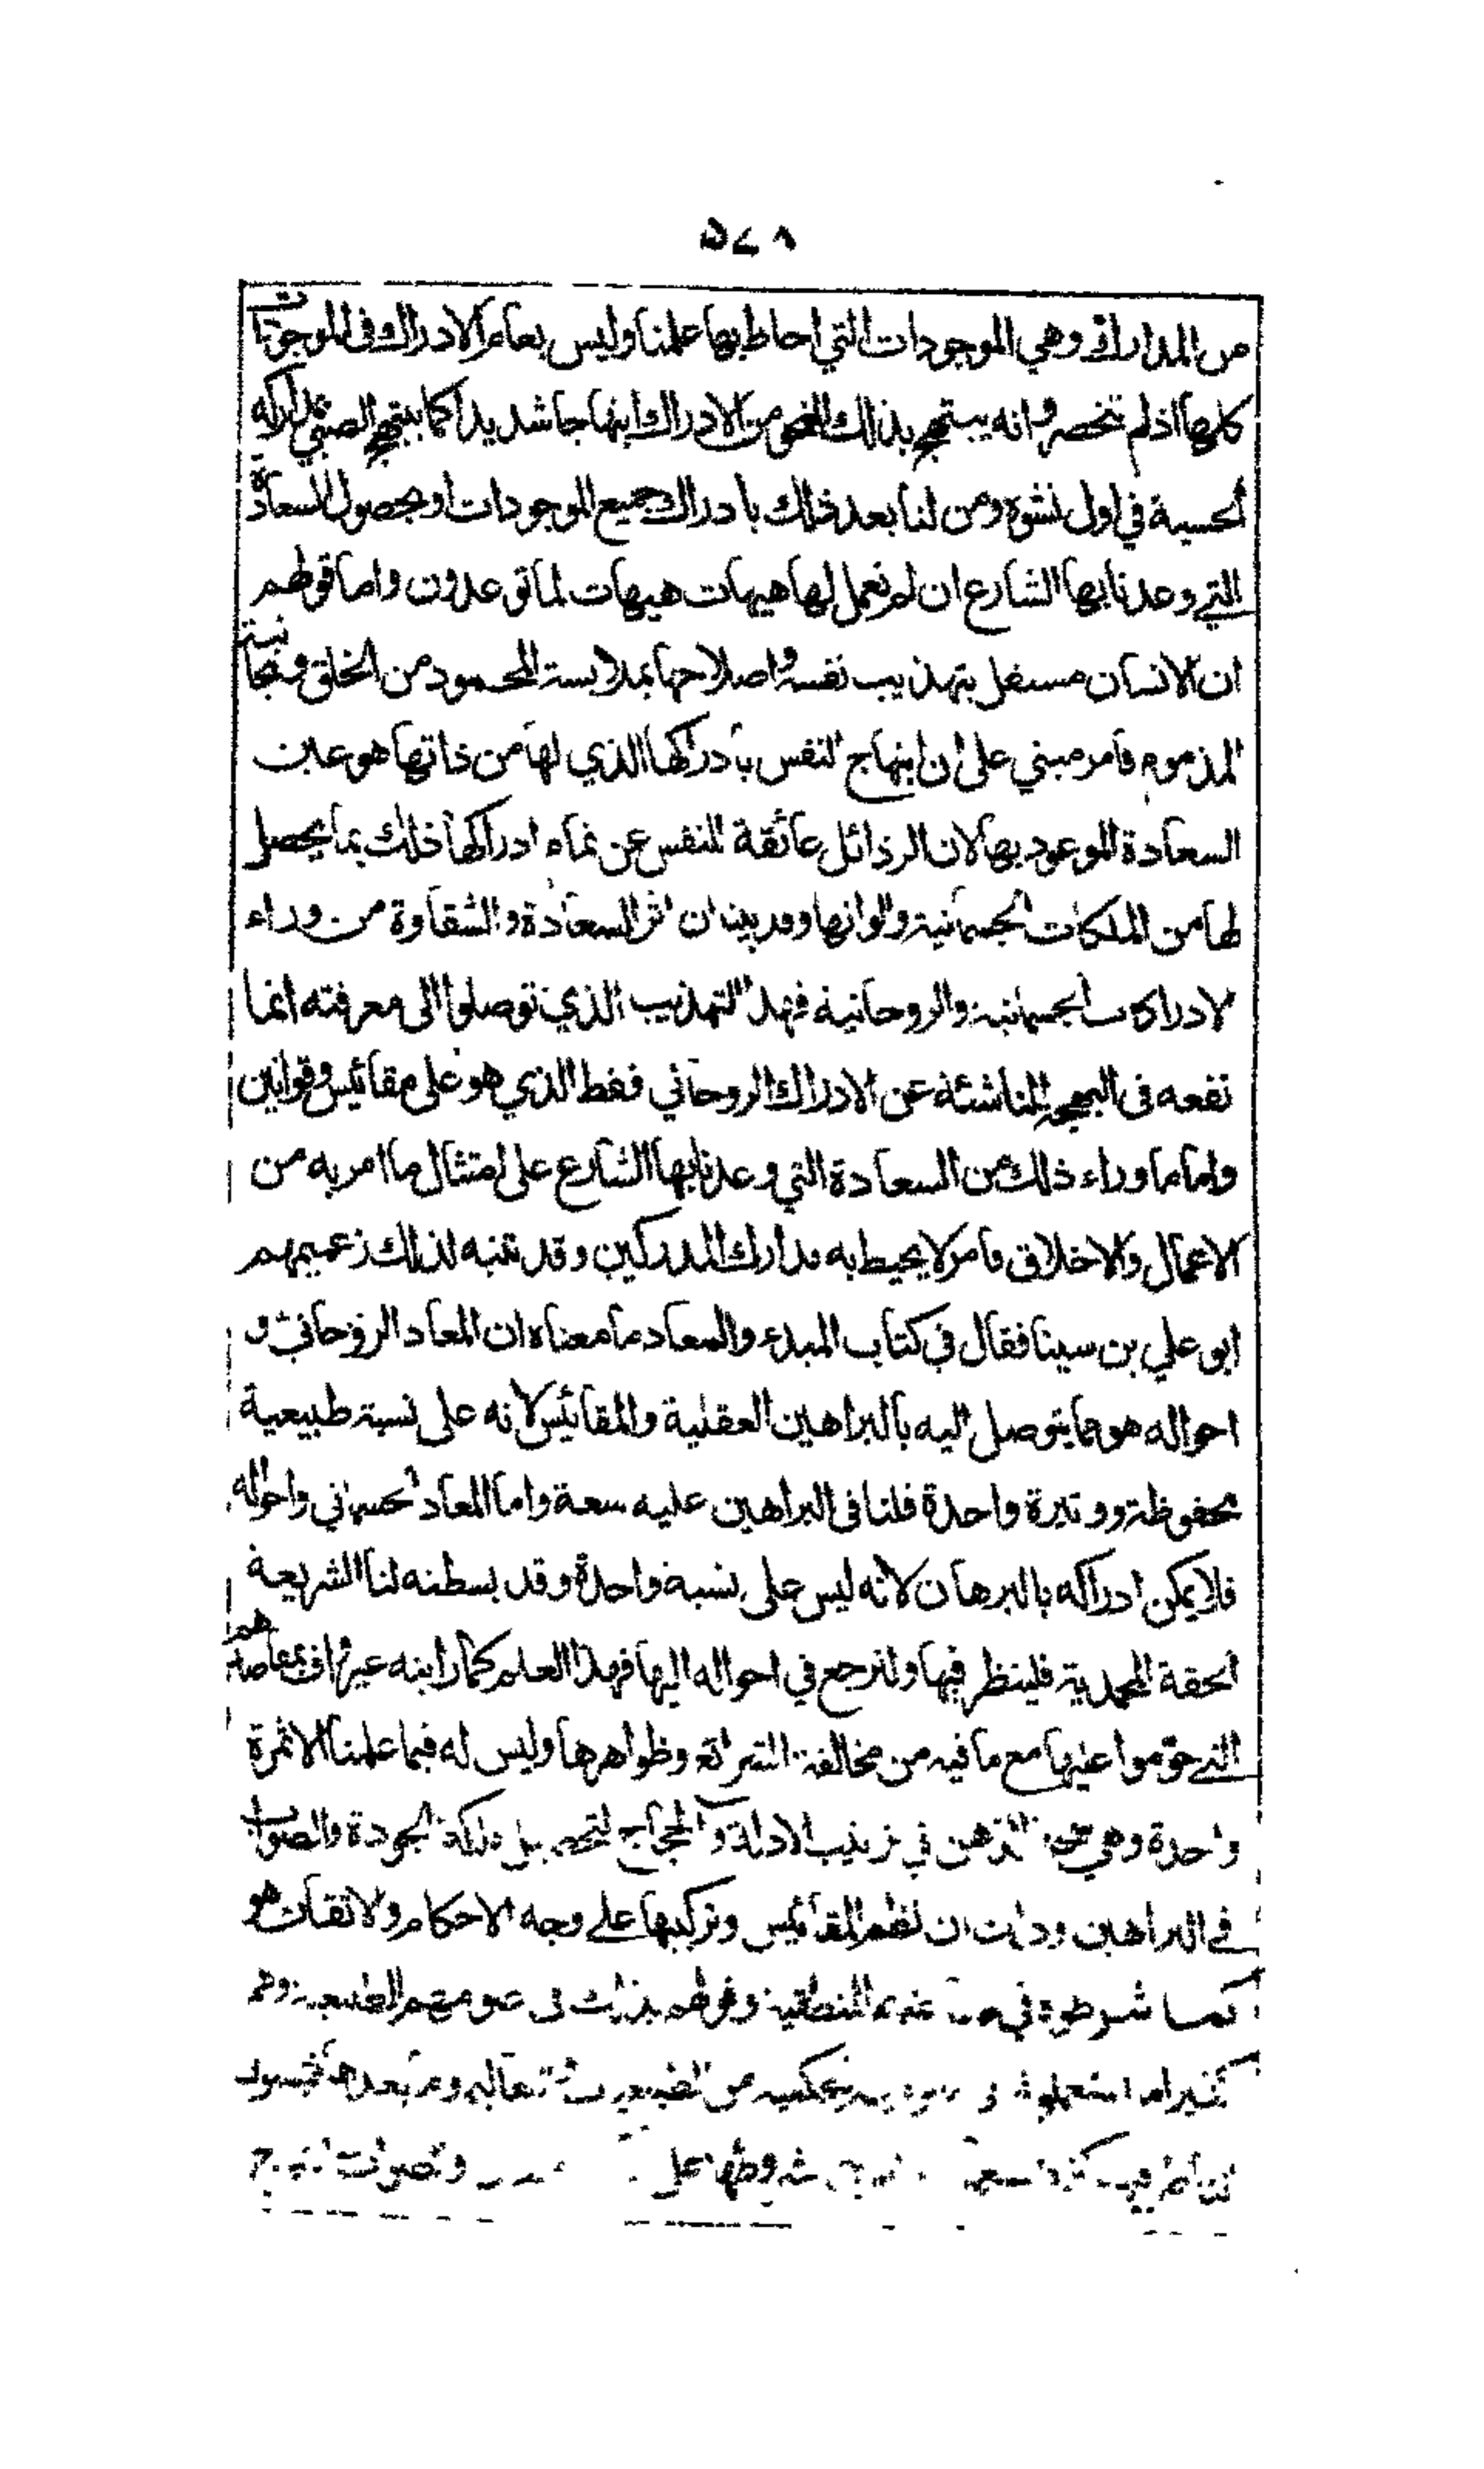 ٥٧٨
من المدارك وهي الموجودات التي احاط بها علمنا وليس بعام الادراك في الموجودات
كلها اذ لم تنحصر وانه يبتهج بذلك النحو من الادراك ابتهاجا شديدا كما يبتهج الصبي بمداركه
الحسية في اول نشوه ومن لنا بعد ذلك بادراك جميع الموجودات او بحصول السعادة
التي وعدنا بها الشارع ان لم نعمل لها هيهات هيهات لما توعدون واما قولهم
ان الانسان مستقل بتهذيب نفسه واصلاحها بملابسة المحمود من الخلق ومجانبة
المذموم فامر مبني على ان ابتهاج النفس بادراكها الذي لها من ذاتها هو عين
السعادة الموعود بها لان الرذائل عائقة للنفس عن تمام ادراكها ذلك بما يحصل
لها من الملكات الجسمانية والوانها وقد بينا ان اثر السعادة والشقاوة من وراء
الادراكات الجسمانية والروحانية فهذا التهذيب الذي توصلوا الى معرفته انما
نفعه في البهجة الناشئة عن الادراك الروحاني فقط الذي هو على مقائيس وقوانين
واما ما وراء ذلك من السعادة التي وعدنا بها الشارع على امتثال ما امر به من
الاعمال والاخلاق فامر لا يحيط به مدارك المدركين وقد تنبه لذلك زعيمهم
ابو علي بن سينا فقال في كتاب المبدء والمعاد ما معناه ان المعاد الروحاني و
احواله هو مما يتوصل اليه بالبراهين العقلية والمقائيس لانه على نسبة طبيعية
محفوظة ووتيرة واحدة فلنا في البراهين عليه سعة واما المعاد الجسماني واحواله
فلا يمكن ادراكه بالبرهان لانه ليس على نسبة واحدة وقد بسطته لنا الشريعة
الحقة المحمدية فلينظر فيها ولنرجع في احواله اليها فهذا العلم كما رايته غير واف بمقاصدهم
التي حوموا عليها مع ما فيه من مخالفة الشرائع وظواهرها وليس له فيما علمنا الا ثمرة
واحدة وهي شحذ الذهن في ترتيب الادلة والحجاج لتحصيل ملكة الجودة والصواب
في البراهين وذلك ان نظم المقائيس وتركيبها على وجه الاحكام والاتقان هو
كما شرطوه في المنطقية وقولهم بذلك في علومهم الطبيعية وهم
كثيرا ما يستعملونها في من التعاليم وما بعدها
الناظر فيها بشروطها على والصواب